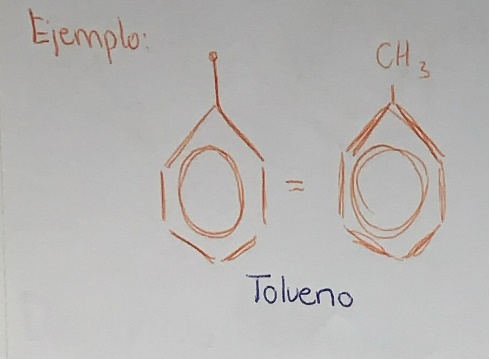 Ejemplo:
CH3
=
Tolueno